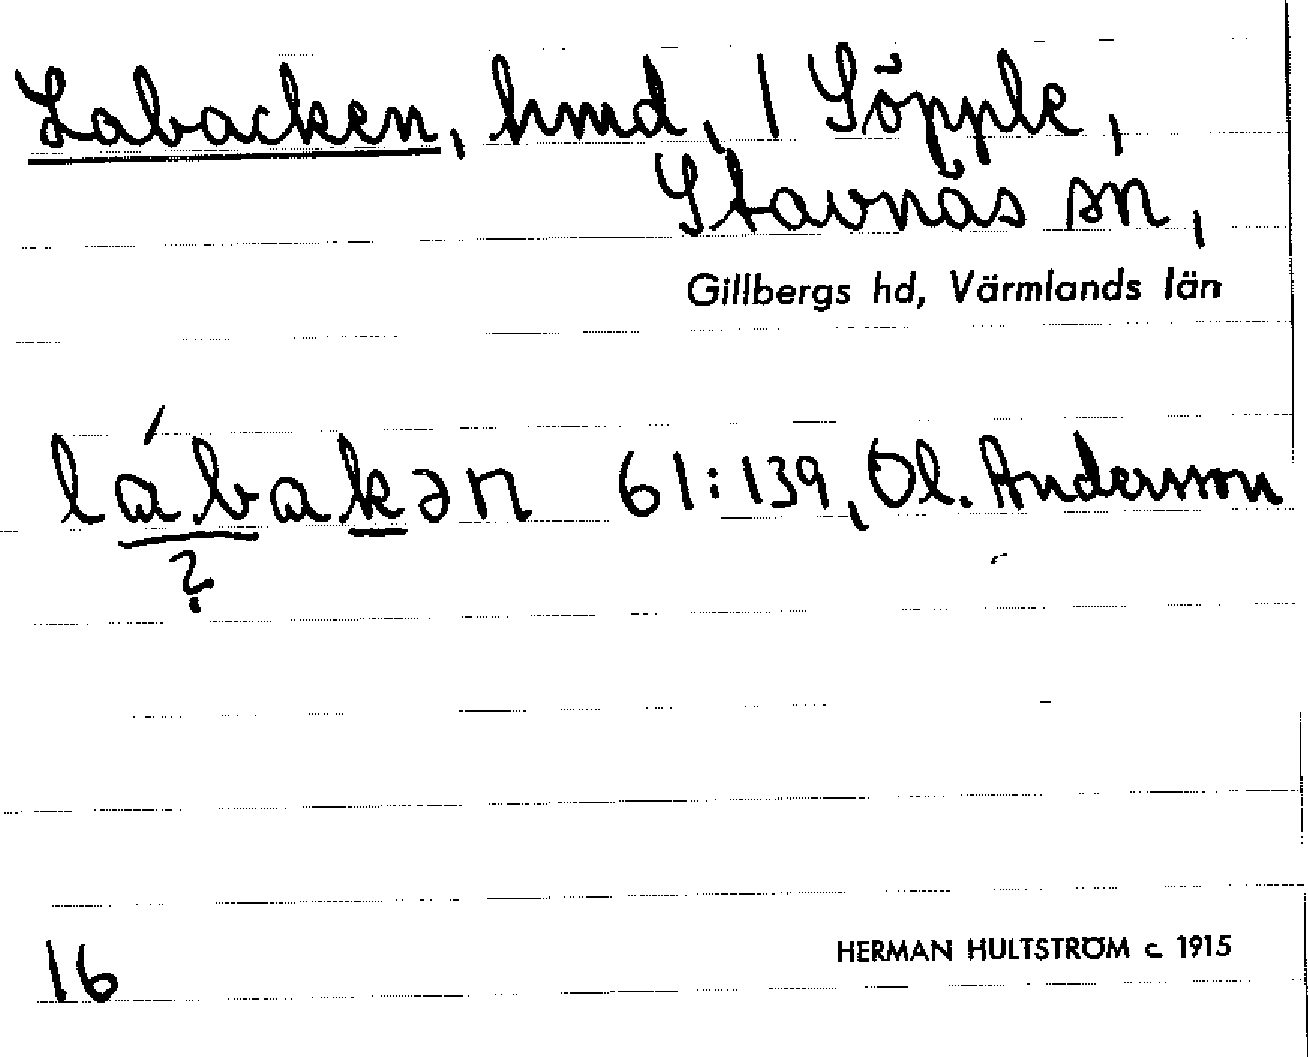 Labacken, hmd, 1 Söpple,
Stavnäs sn,
Gillbergs hd, Värmlands län
lábakən 61:139, Ol. Andersson
?
16
HERMAN HULTSTRÖM c 1915